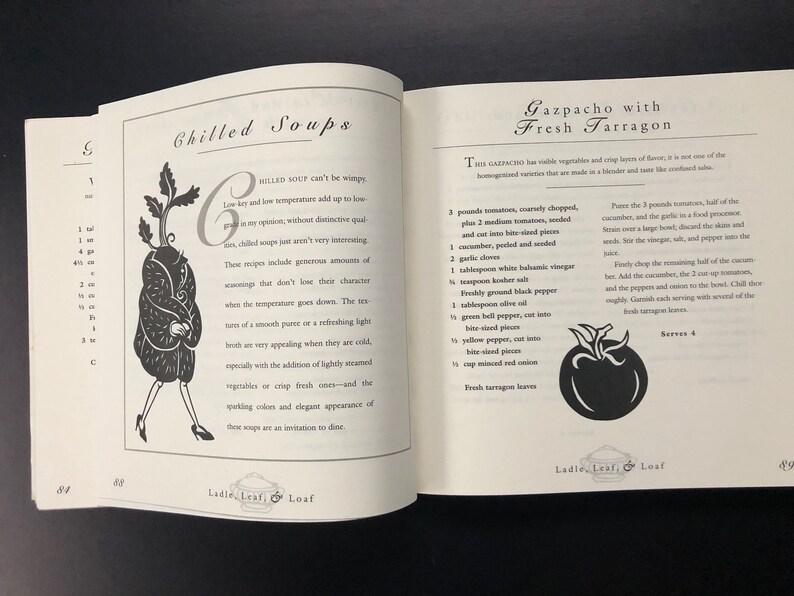 G
V
1 tal
1 sm
4 ga
4½ cu
c
2 cu
½ cu
½ cu
Fr
3 te
84
Chilled Soups
CHILLED SOUP can't be wimpy.
Low-key and low temperature add up to low-
grade in my opinion; without distinctive qual-
ities, chilled soups just aren't very interesting.
These recipes include generous amounts of
seasonings that don't lose their character
when the temperature goes down. The tex-
tures of a smooth puree or a refreshing light
broth are very appealing when they are cold,
especially with the addition of lightly steamed
vegetables or crisp fresh ones—and the
sparkling colors and elegant appearance of
these soups are an invitation to dine.
88
Ladle, Leaf, & Loaf
Gazpacho with
Fresh Tarragon
THIS GAZPACHO has visible vegetables and crisp layers of flavor; it is not one of the
homogenized varieties that are made in a blender and taste like confused salsa.
3 pounds tomatoes, coarsely chopped,
plus 2 medium tomatoes, seeded
and cut into bite-sized pieces
1 cucumber, peeled and seeded
2 garlic cloves
1 tablespoon white balsamic vinegar
¾ teaspoon kosher salt
Freshly ground black pepper
1 tablespoon olive oil
½ green bell pepper, cut into
bite-sized pieces
½ yellow pepper, cut into
bite-sized pieces
½ cup minced red onion
Fresh tarragon leaves
Puree the 3 pounds tomatoes, half of the
cucumber, and the garlic in a food processor.
Strain over a large bowl; discard the skins and
seeds. Stir the vinegar, salt, and pepper into the
juice.
Finely chop the remaining half of the cucum-
ber. Add the cucumber, the 2 cut-up tomatoes,
and the peppers and onion to the bowl. Chill thor
oughly. Garnish each serving with several of the
fresh tarragon leaves.
Serves 4
Ladle, Leaf, & Loaf
89